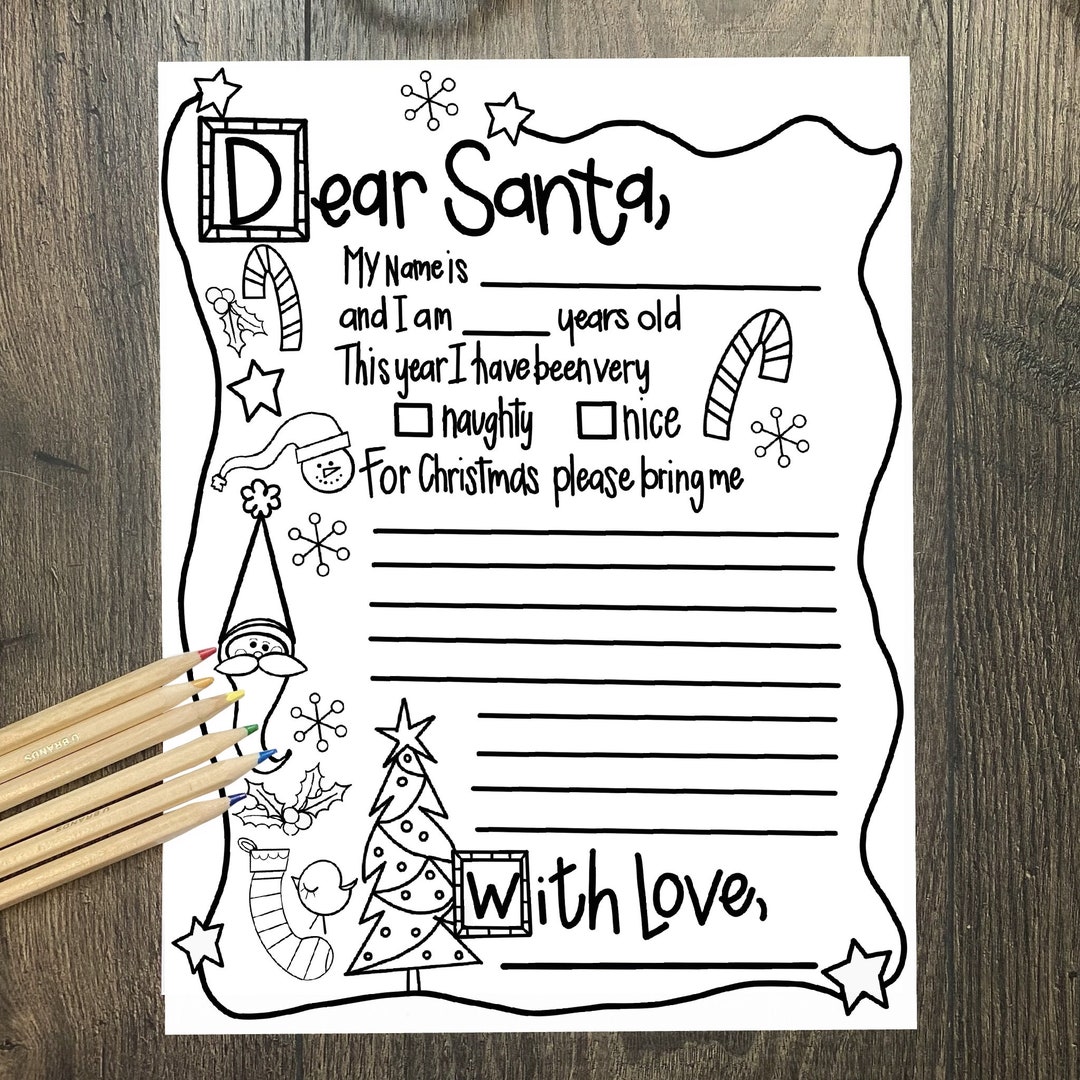 Dear Santa,
My Name is
and I am years old
This year I have been very
naughty nice
For Christmas please bring me
With Love,
U BRANDS